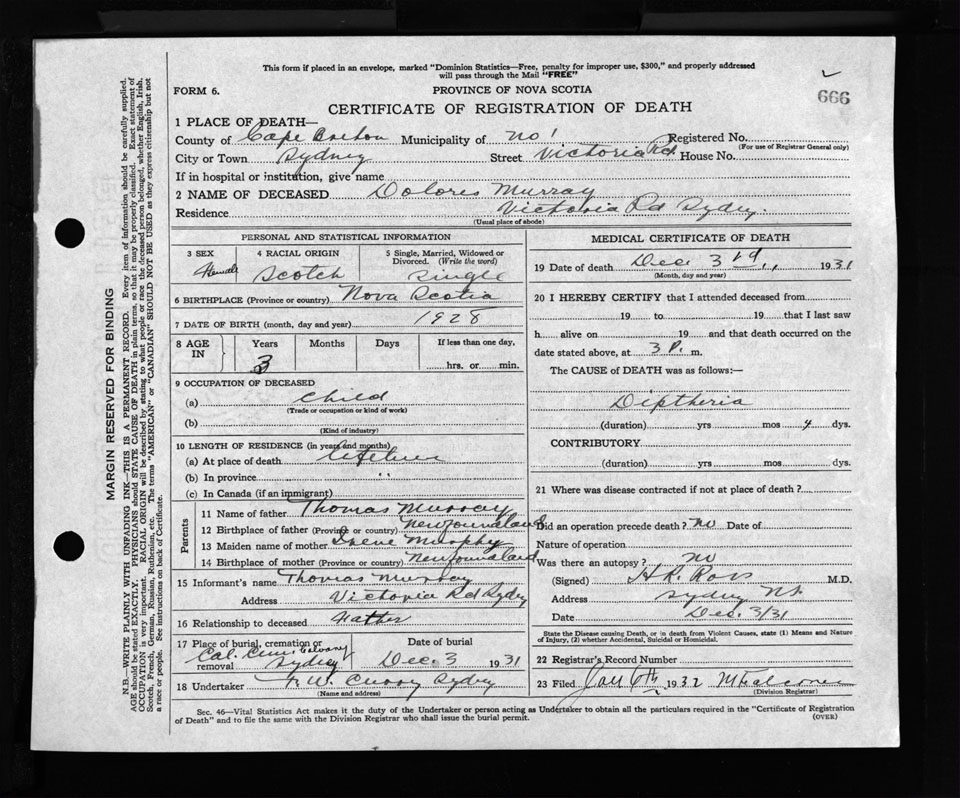 This form if placed in an envelope, marked "Dominion Statistics—Free, penalty for improper use, $300," and properly addressed
will pass through the Mail "FREE"
666
FORM 6.
PROVINCE OF NOVA SCOTIA
CERTIFICATE OF REGISTRATION OF DEATH
1 PLACE OF DEATH—
County of Cape Breton Municipality of No 1 Registered No.
(For use of Registrar General only)
City or Town Sydney Street Victoria Rd. House No.
If in hospital or institution, give name
2 NAME OF DECEASED Dolores Murray
Residence Victoria Rd Sydney.
(Usual place of abode)
PERSONAL AND STATISTICAL INFORMATION
3 SEX 4 RACIAL ORIGIN 5 Single, Married, Widowed or
Divorced. (Write the word)
Female Scotch Single
6 BIRTHPLACE (Province or country) Nova Scotia
7 DATE OF BIRTH (month, day and year) 1928
8 AGE IN Years Months Days If less than one day,
3 hrs. or min.
9 OCCUPATION OF DECEASED
(a) Child
(Trade or occupation or kind of work)
(b)
(Kind of industry)
10 LENGTH OF RESIDENCE (in years and months)
(a) At place of death lifetime
(b) In province "
(c) In Canada (if an immigrant)
Parents
11 Name of father Thomas Murray
12 Birthplace of father (Province or country) Newfoundland
13 Maiden name of mother Irene Murphy
14 Birthplace of mother (Province or country) Newfoundland
15 Informant's name Thomas Murray
Address Victoria Rd Sydney
16 Relationship to deceased Father
17 Place of burial, cremation or Date of burial
removal Cal. Cem. Calvary Sydney Dec. 3 1931
18 Undertaker W. Curry Sydney
(Name and address)
MEDICAL CERTIFICATE OF DEATH
19 Date of death Dec 3 1931
(Month, day and year)
20 I HEREBY CERTIFY that I attended deceased from
19 to 19 that I last saw
h alive on 19 and that death occurred on the
date stated above, at 3 P. m.
The CAUSE of DEATH was as follows:—
Diptheria
(duration) yrs mos 4 dys.
CONTRIBUTORY
(duration) yrs mos dys.
21 Where was disease contracted if not at place of death?
Did an operation precede death? no Date of
Nature of operation
Was there an autopsy? no
(Signed) H.R. Ross M.D.
Address Sydney N.S.
Date Dec. 3/31
State the Disease causing Death, or in death from Violent Causes, state (1) Means and Nature
of Injury, (2) whether Accidental, Suicidal or Homicidal.
22 Registrar's Record Number
23 Filed Jan 6th 1932
(Division Registrar)
Sec. 46—Vital Statistics Act makes it the duty of the Undertaker or person acting as Undertaker to obtain all the particulars required in the "Certificate of Registration
of Death" and to file the same with the Division Registrar who shall issue the burial permit.
(OVER)
MARGIN RESERVED FOR BINDING
N.B.—WRITE PLAINLY WITH UNFADING INK—THIS IS A PERMANENT RECORD. Every item of information should be carefully supplied.
AGE should be stated EXACTLY. PHYSICIANS should STATE CAUSE OF DEATH in plain terms, so that it may be properly classified. Exact statement of
OCCUPATION is very important. RACIAL ORIGIN will be described by stating to what people or race the deceased person belonged, whether English, Irish,
Scotch, French, German, Russian, Ruthenian, etc. The terms "AMERICAN" or "CANADIAN" SHOULD NOT BE USED as they express citizenship but not
a race or people. See instructions on back of Certificate.